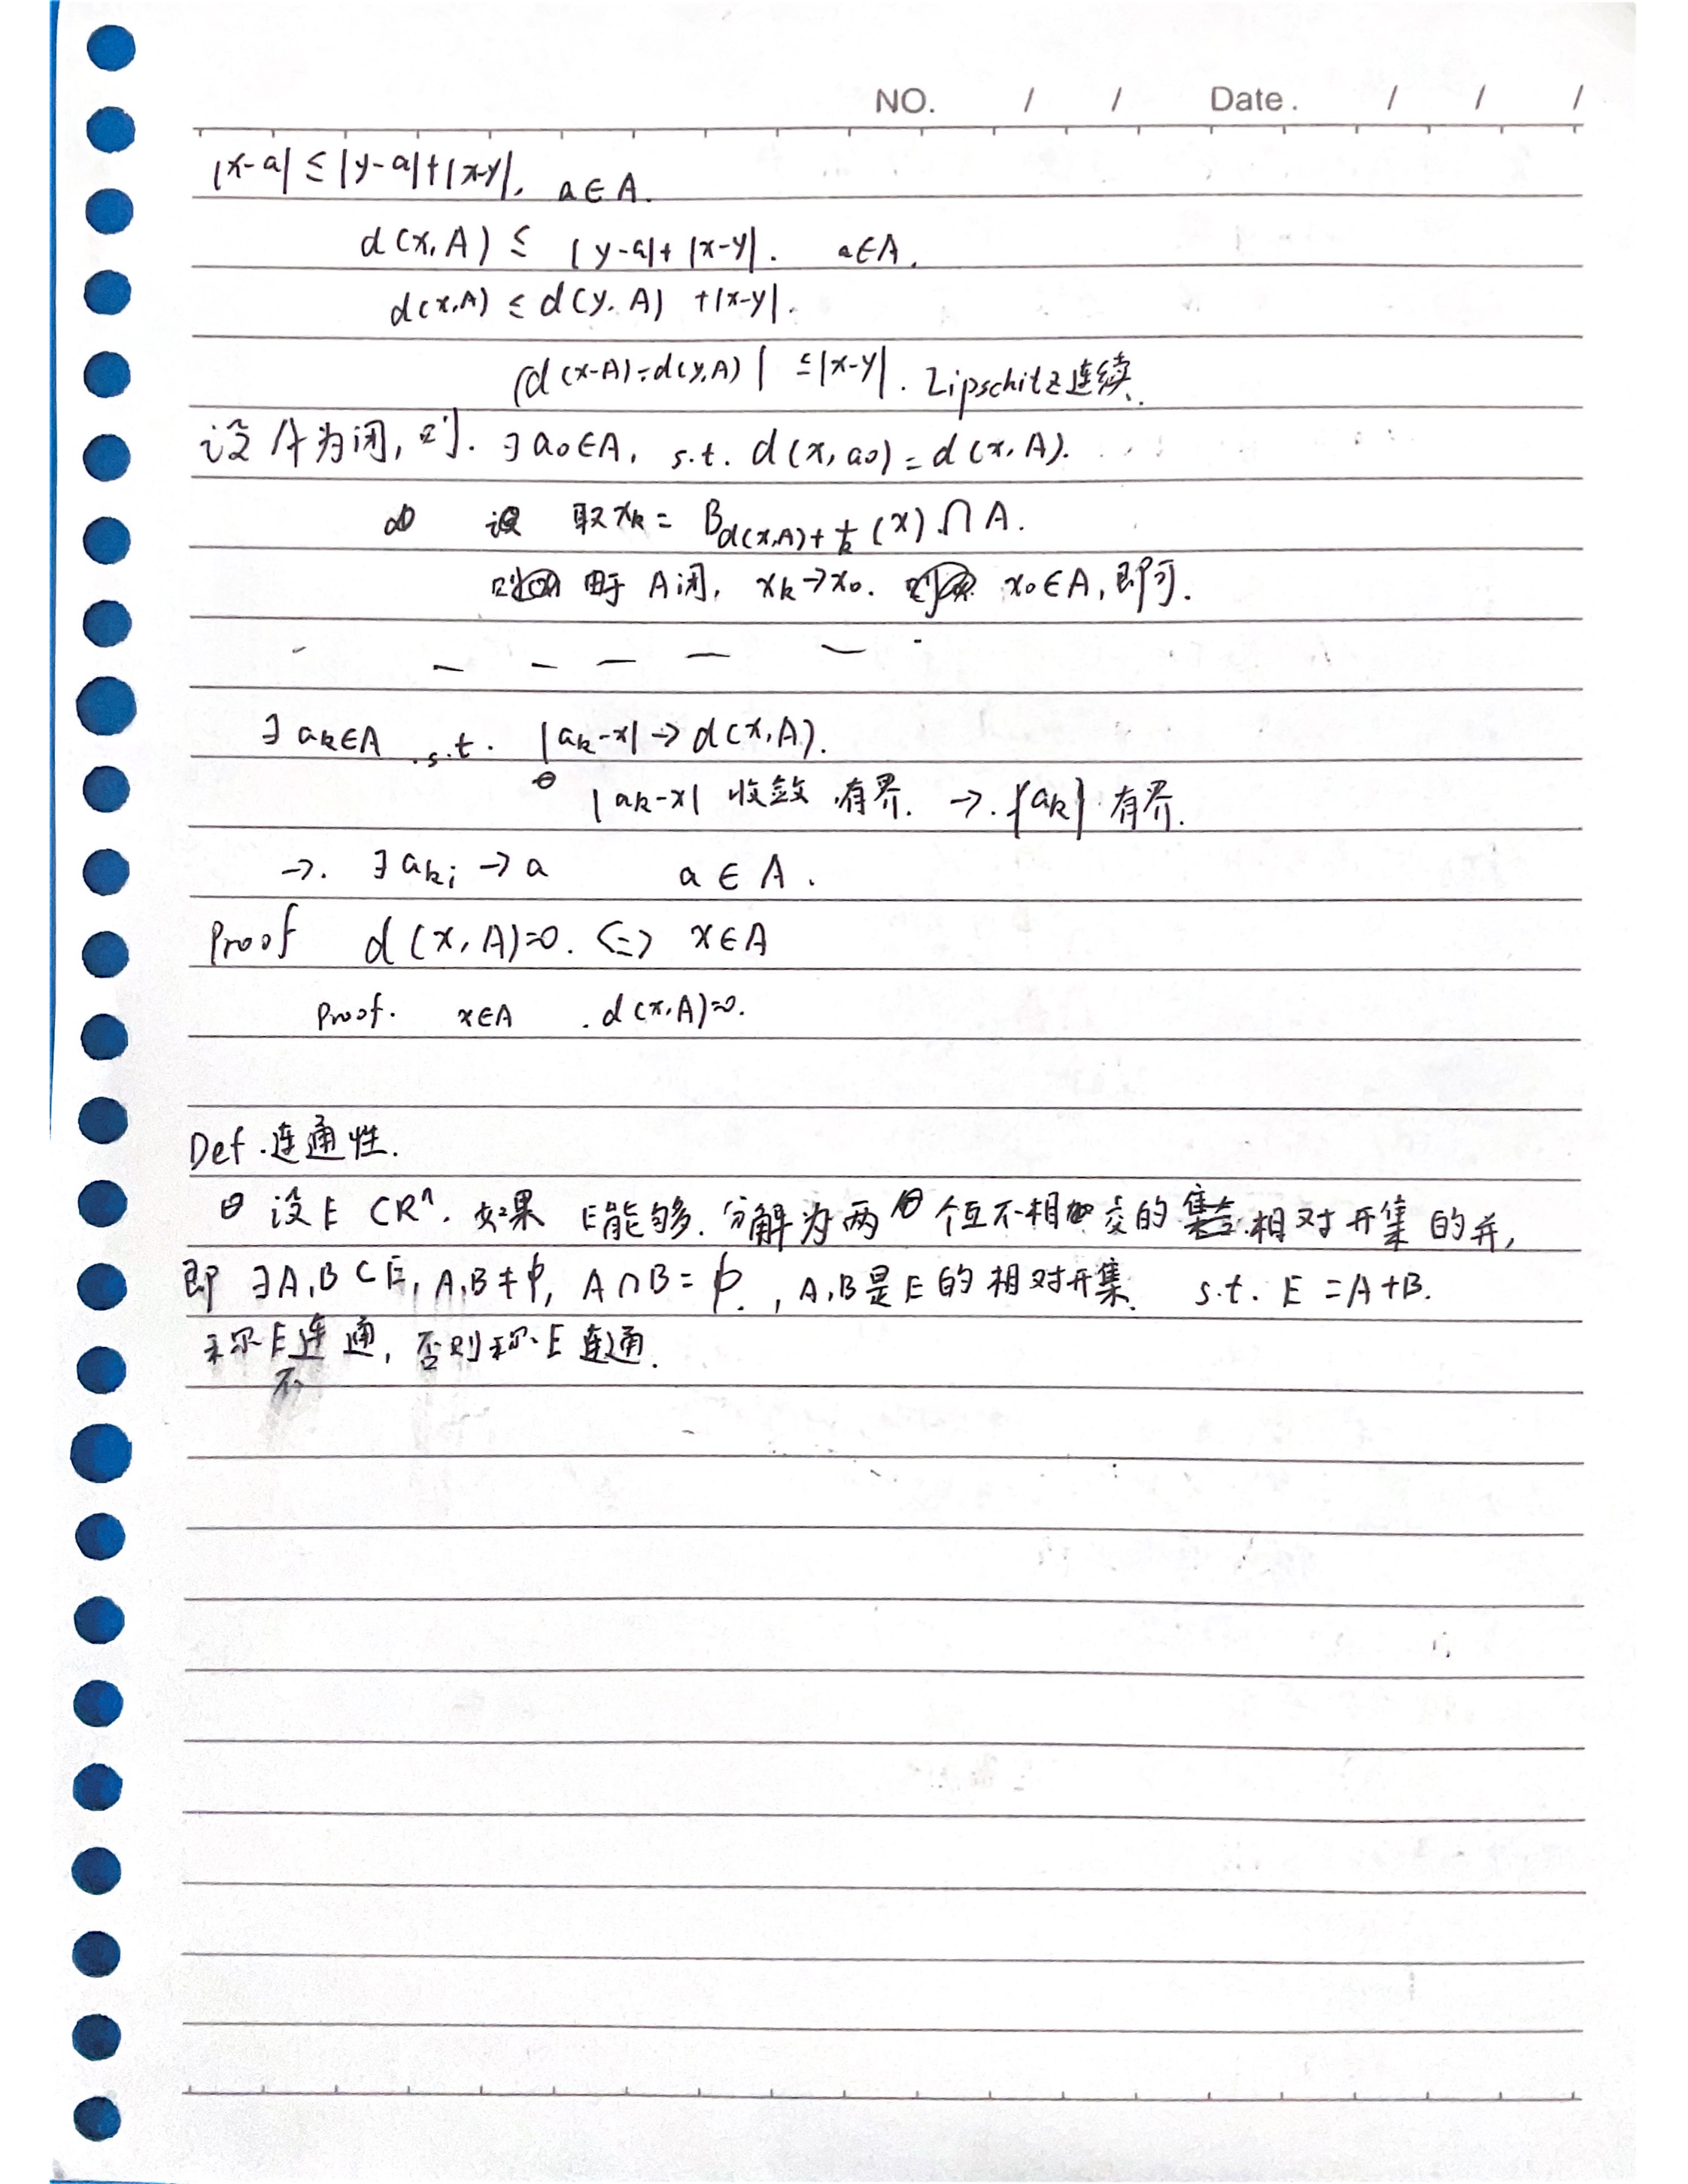 NO. / / Date. / / /
|x-a| ≤ |y-a|+|x-y|, a∈A.
d(x,A) ≤ |y-a|+|x-y|. a∈A.
d(x,A) ≤ d(y,A) +|x-y|.
|d(x-A)-d(y,A)| ≤|x-y|. Lipschitz连续.
设A为闭, 则. ∃a₀∈A, s.t. d(x,a₀)=d(x,A).
设 取xₖ= B_{d(x,A)+1/k}(x)∩A.
由于A闭, xₖ→x₀. x₀∈A, 即可.
∃aₖ∈A s.t. |aₖ-x|→d(x,A).
|aₖ-x| 收敛,有界. →. {aₖ}有界.
→. ∃a_{kᵢ}→a a∈A.
Proof d(x,A)=0. <=> x∈A
Proof. x∈A . d(x,A)=0.
Def.连通性.
设E⊂Rⁿ. 如果E能够.分解为两个互不相交的相对开集的并,
即∃A,B⊂E, A,B≠∅, A∩B=∅., A,B是E的相对开集. s.t. E=A+B.
称E不连通, 否则称E连通.